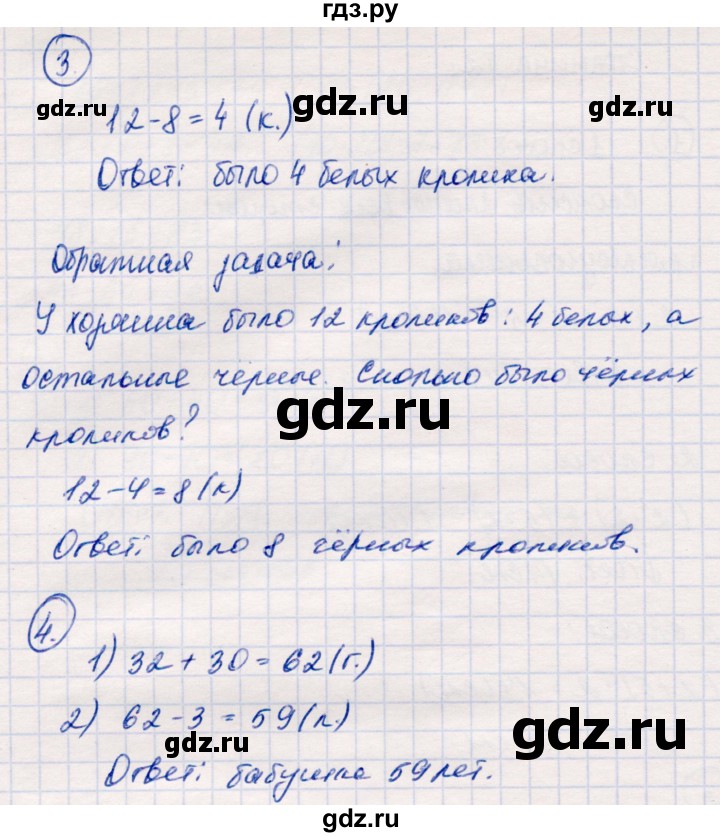 гдз.ру
3.
gdz.ru gdz.ru gdz.ru
12-8=4 (к.)
Ответ: было 4 белых кролика.
Обратная задача:
У хозяина было 12 кроликов: 4 белых, а
остальные чёрные. Сколько было чёрных
gdz.ru
кроликов?
12-4=8(к)
Ответ: было 8 чёрных кроликов.
4.
1) 32+30=62(г.)
2) 62-3=59(л.)
gdz.ru gdz.ru
Ответ: бабушке 59 лет.
gdz.ru